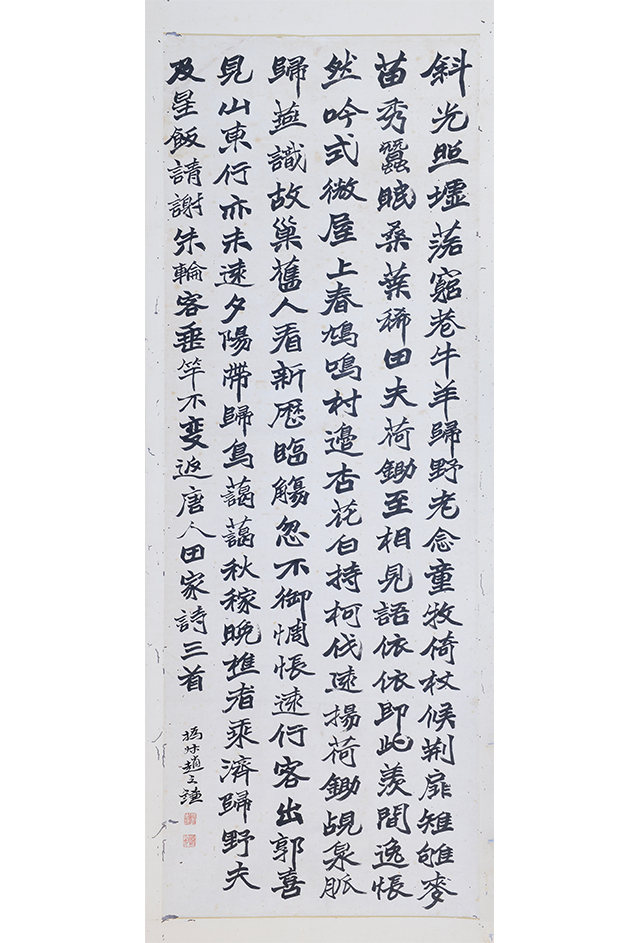 斜光照墟落窮巷牛羊歸野老念童牧倚杖候荆扉雉雊麥
苗秀蠶眠桑葉稀田夫荷鋤至相見語依依即此羨間逸悵
然吟式微屋上春鳩鳴村邊杏花白持柯伐遠揚荷鋤覘泉脈
歸燕識故巢舊人看新歷臨觴忽不御惆悵遠行客出郭喜
見山東行亦未遠夕陽帶歸鳥藹藹秋稼晚樵者乘濟歸野夫
及星飯請謝朱輪客垂竿不變返唐人田家詩三首
撝叔趙之謙